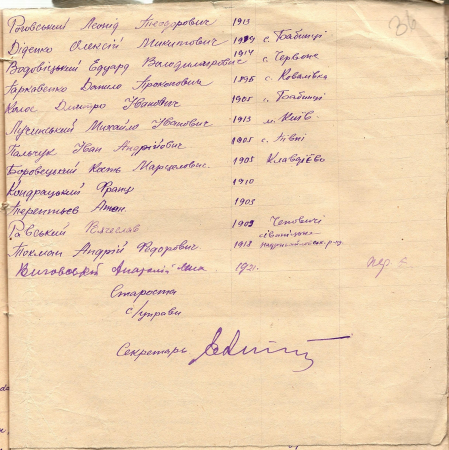 36
Роговський Леонід Теодорович 1913
Діденко Олексій Микитович с. Бабинці
Водовіцький Едуард Володимирович 1914 с. Червоне
Гарковенко Данило Прокопович 1896 с. Ковалівка
Колос Дмитро Іванович 1905 с. Бабинці
Лучинський Михайло Іванович 1913 м. Київ
Пальчук Іван Андрійович 1905 с.
Боровецький Кость Марцелович 1905 Клавдієво
Кондрацький Франц 1910
Терентьєв Антон 1903
Равський Вячеслав 1903 Чеповичі
Токман Андрій Федорович 1913
Виговський Анатолій 1921
Староста
с/управи
Секретарь